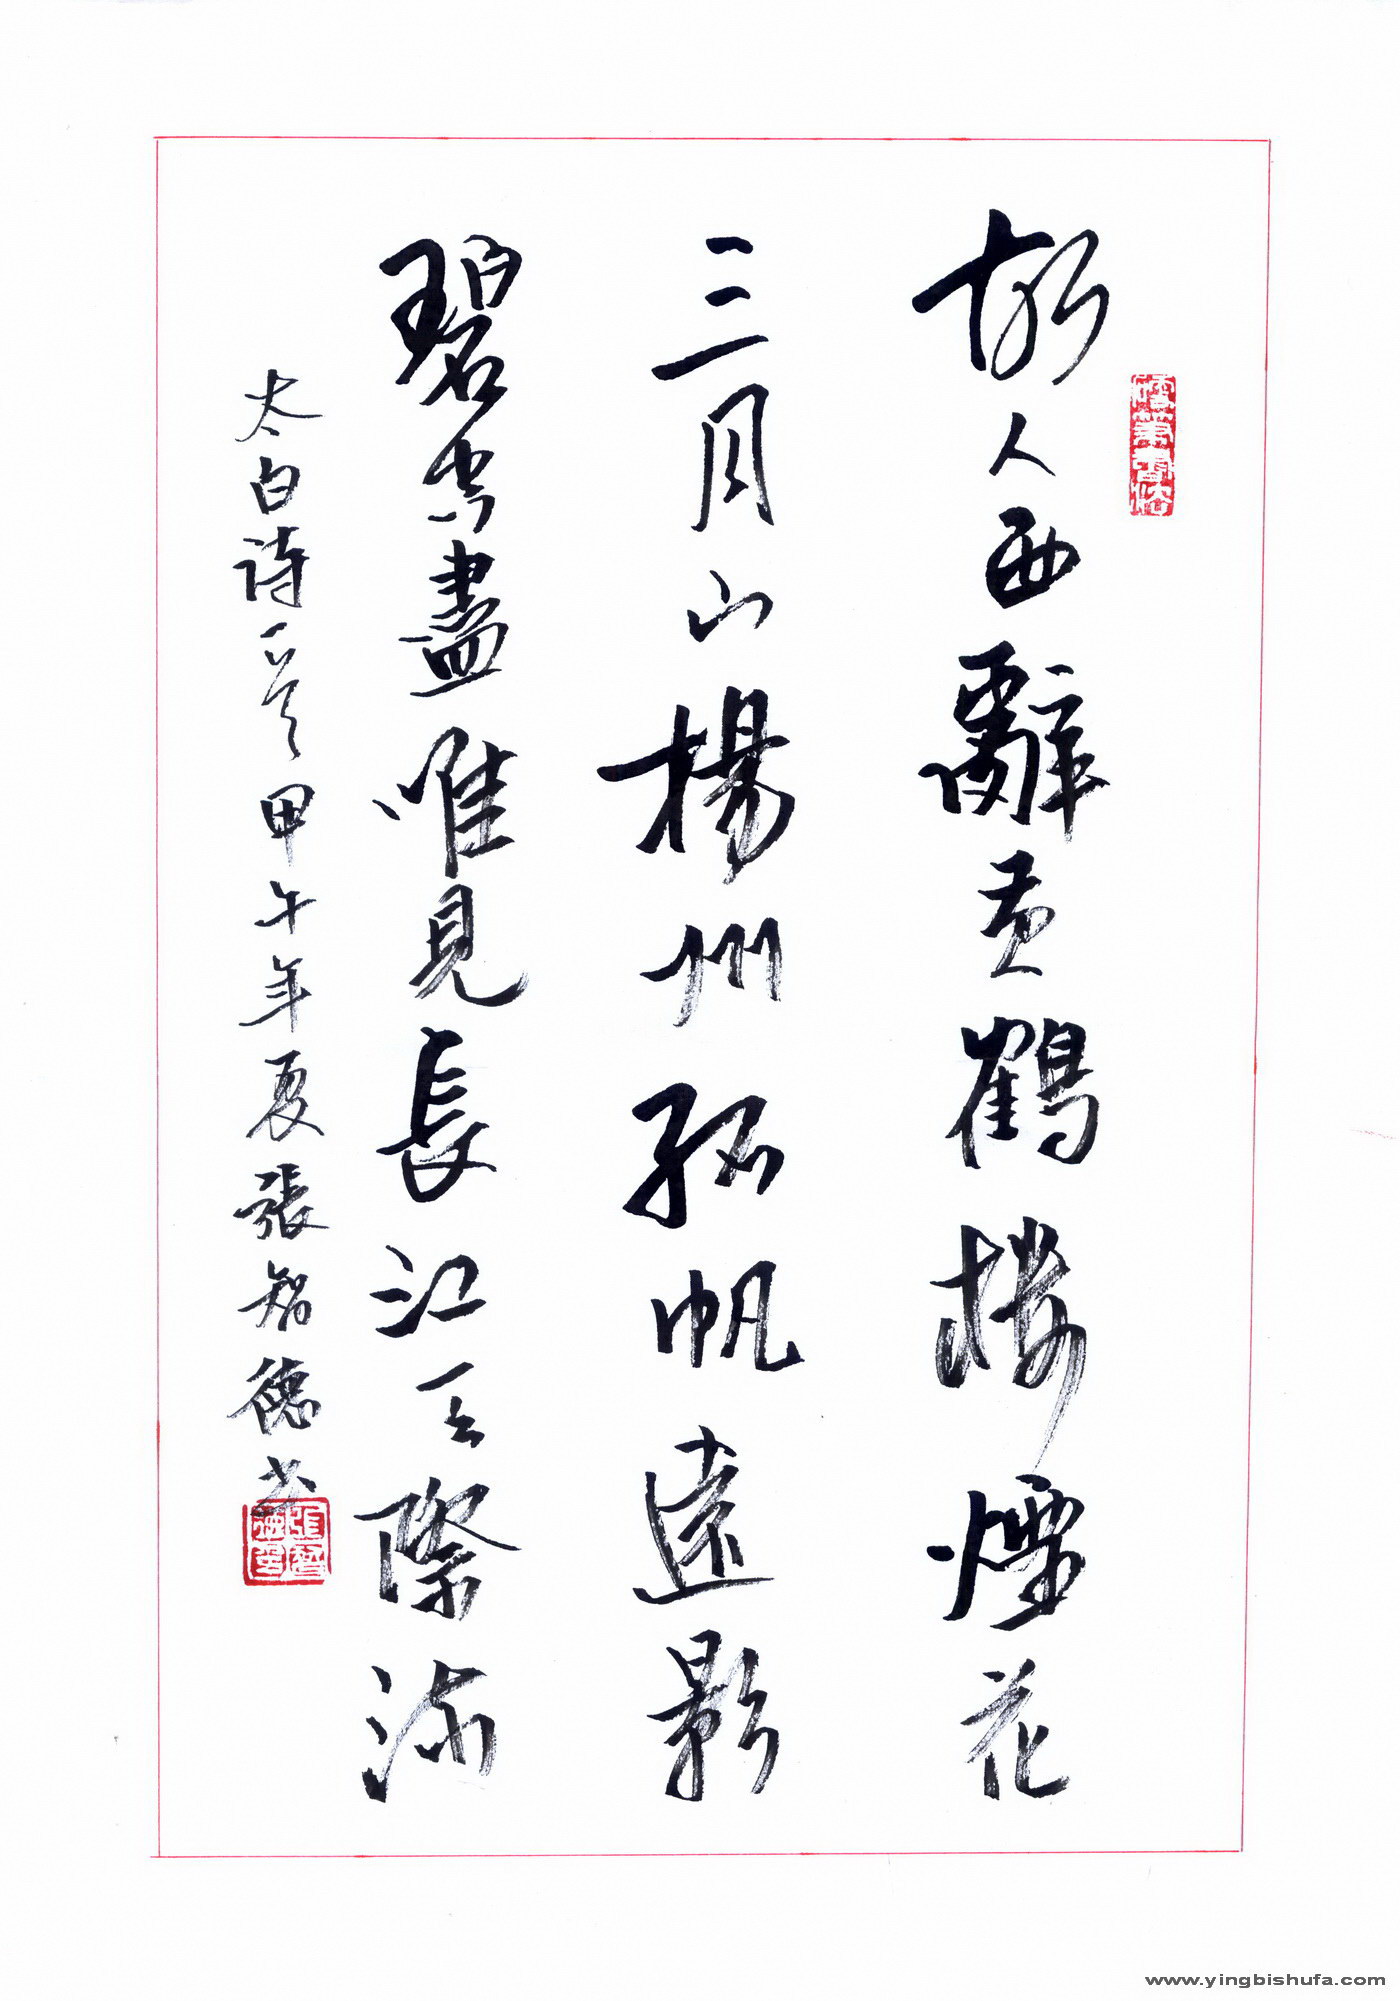 故人西辭黄鶴樓煙花
三月下揚州孤帆遠影
碧空盡唯見長江天際流
太白詩一首甲午年夏張智德书
硬筆書法
張智德印
www.yingbishufa.com